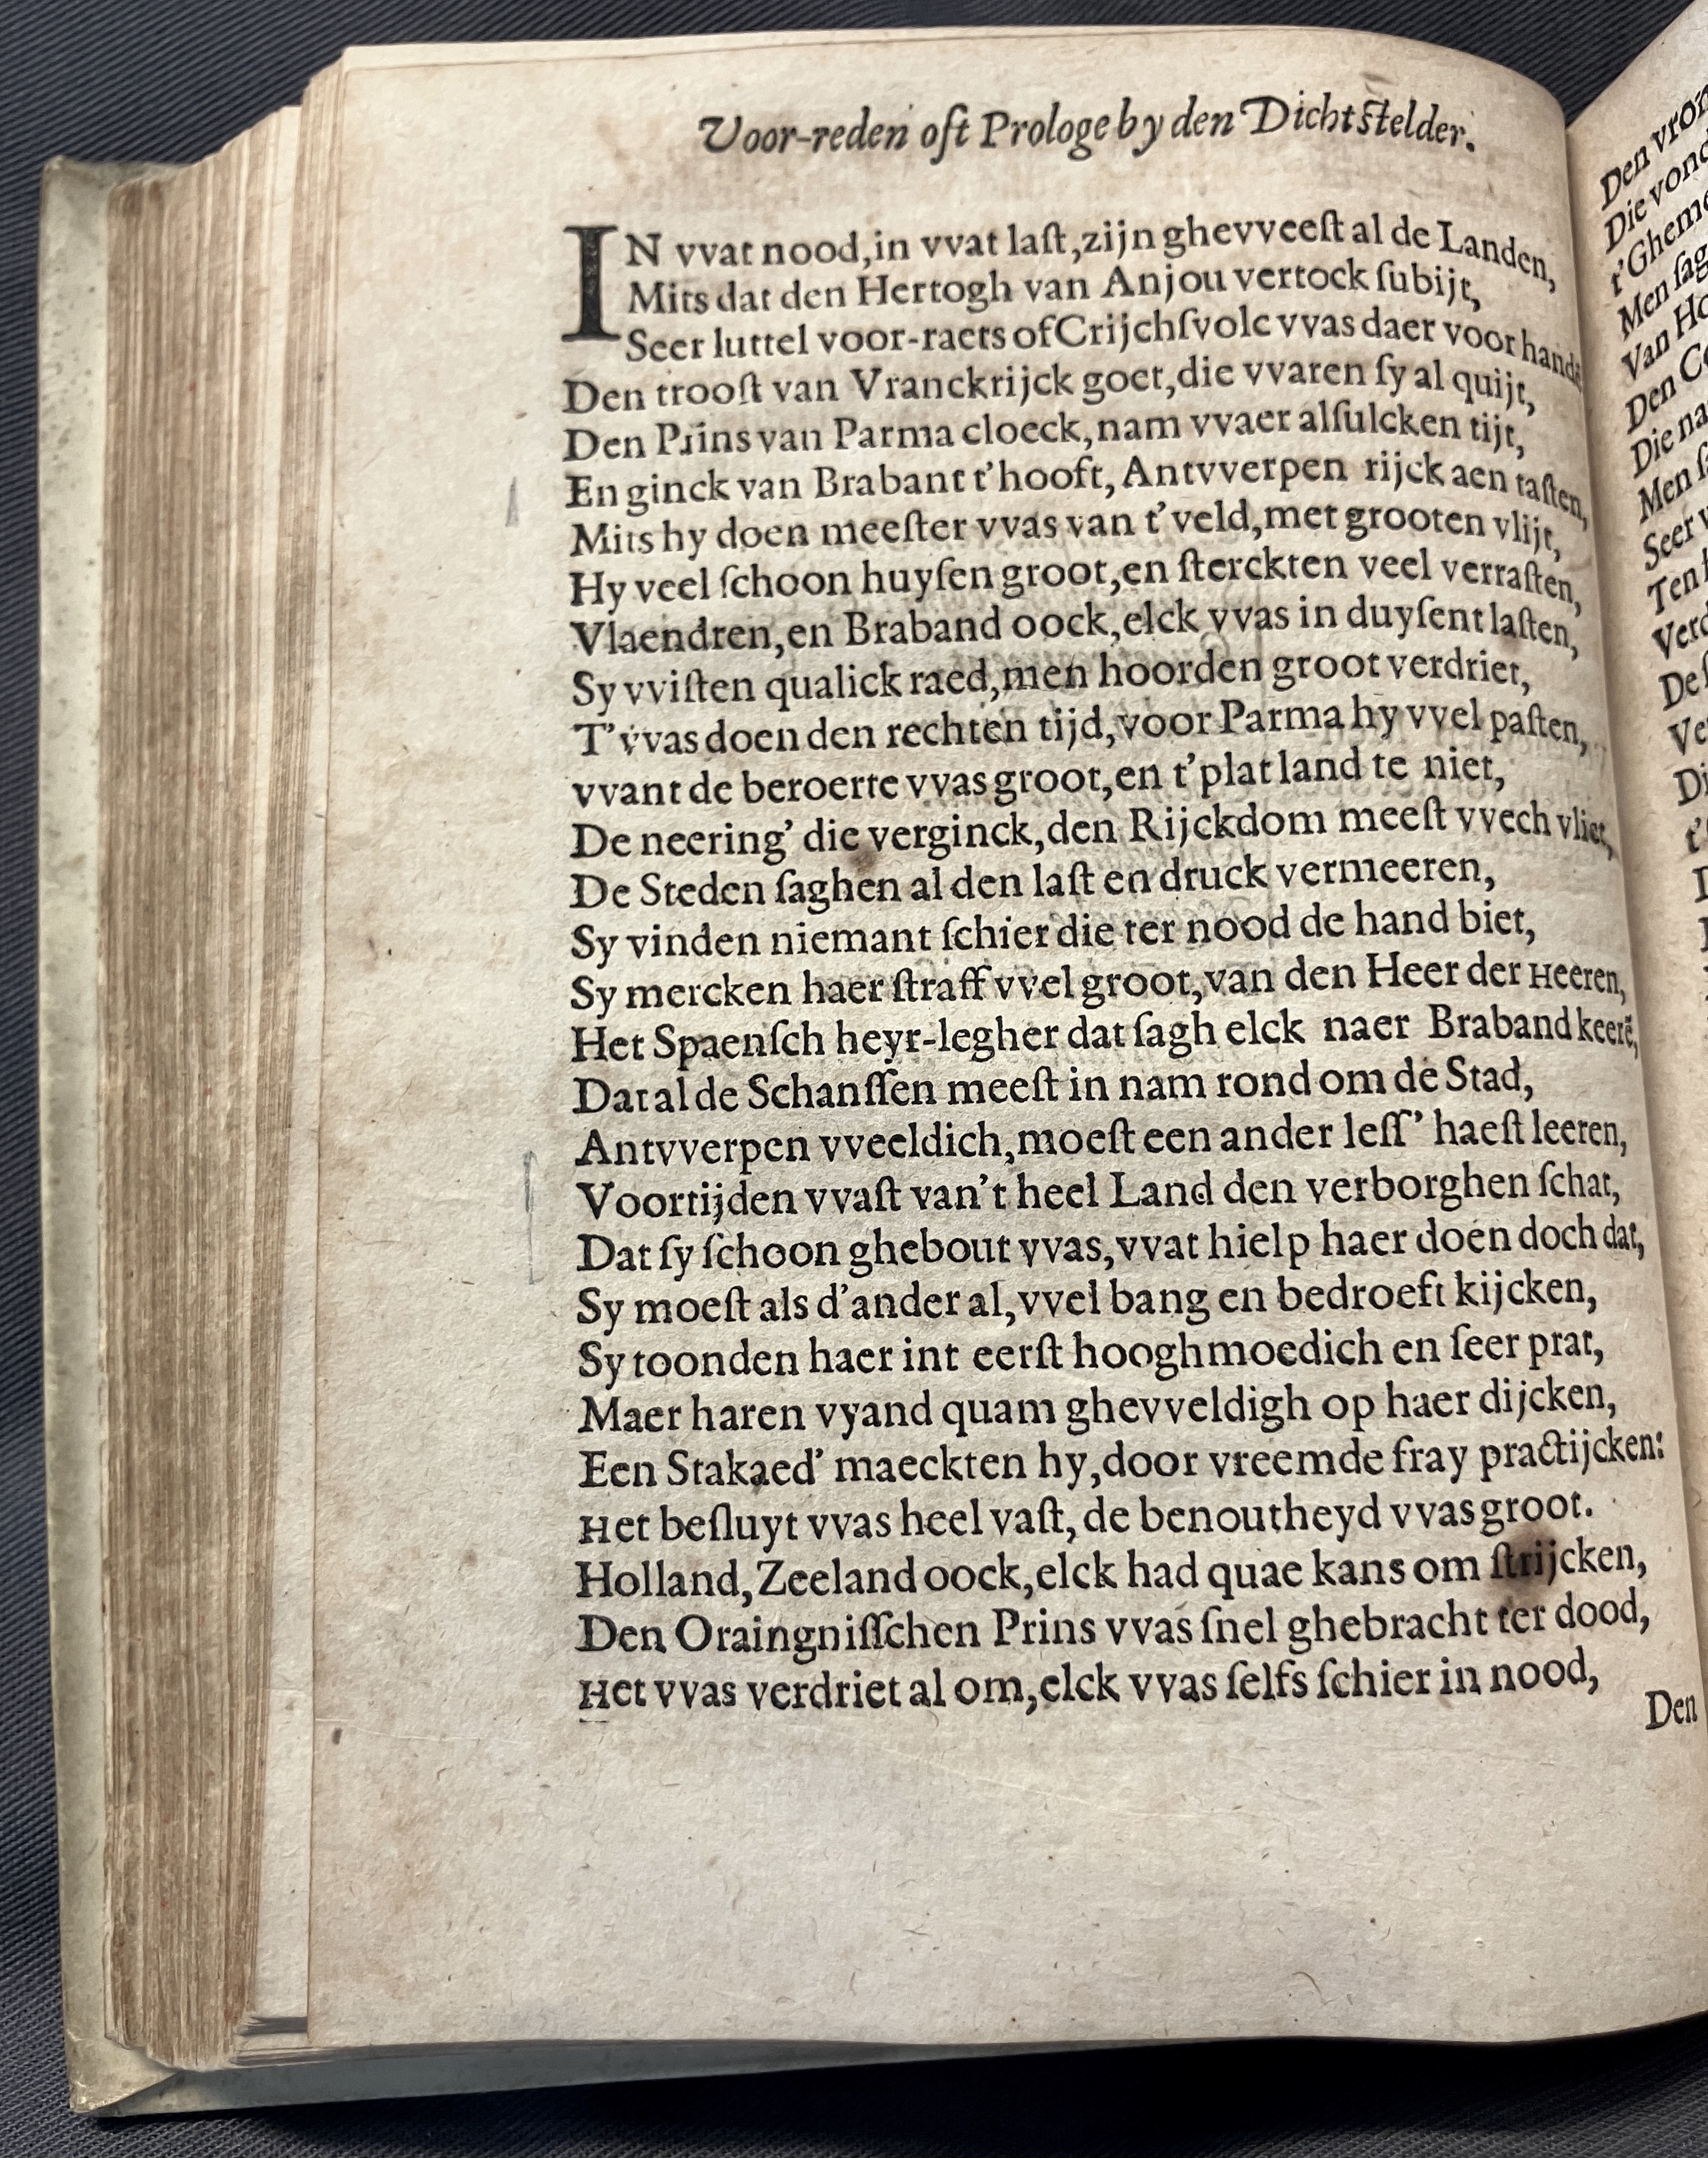 Voor-reden oft Prologe by den Dichtstelder.
IN vvat nood, in vvat laſt, zijn ghevveeſt al de Landen,
Mits dat den Hertogh van Anjou vertock ſubijt,
Seer luttel voor-raets of Crijchſvolc vvas daer voor handē
Den trooſt van Vranckrijck goet, die vvaren ſy al quijt,
Den Prins van Parma cloeck, nam vvaer alſulcken tijt,
En ginck van Brabant t'hooft, Antvverpen rijck aen taſten,
Mits hy doen meeſter vvas van t'veld, met grooten vlijt,
Hy veel ſchoon huyſen groot, en ſterckten veel verraſten,
Vlaendren, en Braband oock, elck vvas in duyſent laſten,
Sy vviſten qualick raed, men hoorden groot verdriet,
T'vvas doen den rechten tijd, voor Parma hy vvel paſten,
vvant de beroerte vvas groot, en t'plat land te niet,
De neering' die verginck, den Rijckdom meeſt vvech vliet,
De Steden ſaghen al den laſt en druck vermeeren,
Sy vinden niemant ſchier die ter nood de hand biet,
Sy mercken haer ſtraff vvel groot, van den Heer der Heeren,
Het Spaenſch heyr-legher dat ſagh elck naer Braband keerē,
Dat al de Schanſſen meeſt in nam rond om de Stad,
Antvverpen vveeldich, moeſt een ander leſſ' haeſt leeren,
Voortijden vvaſt van't heel Land den verborghen ſchat,
Dat ſy ſchoon ghebout vvas, vvat hielp haer doen doch dat,
Sy moeſt als d'ander al, vvel bang en bedroeft kijcken,
Sy toonden haer int eerſt hooghmoedich en ſeer prat,
Maer haren vyand quam ghevveldigh op haer dijcken,
Een Stakaed' maeckten hy, door vreemde fray practijcken:
Het beſluyt vvas heel vaſt, de benoutheyd vvas groot.
Holland, Zeeland oock, elck had quae kans om ſtrijcken,
Den Oraingniſſchen Prins vvas ſnel ghebracht ter dood,
Het vvas verdriet al om, elck vvas ſelfs ſchier in nood,
Den
Den
Die
t'Gheme
Men
Van
Den
Die
Men
Seer
Ten